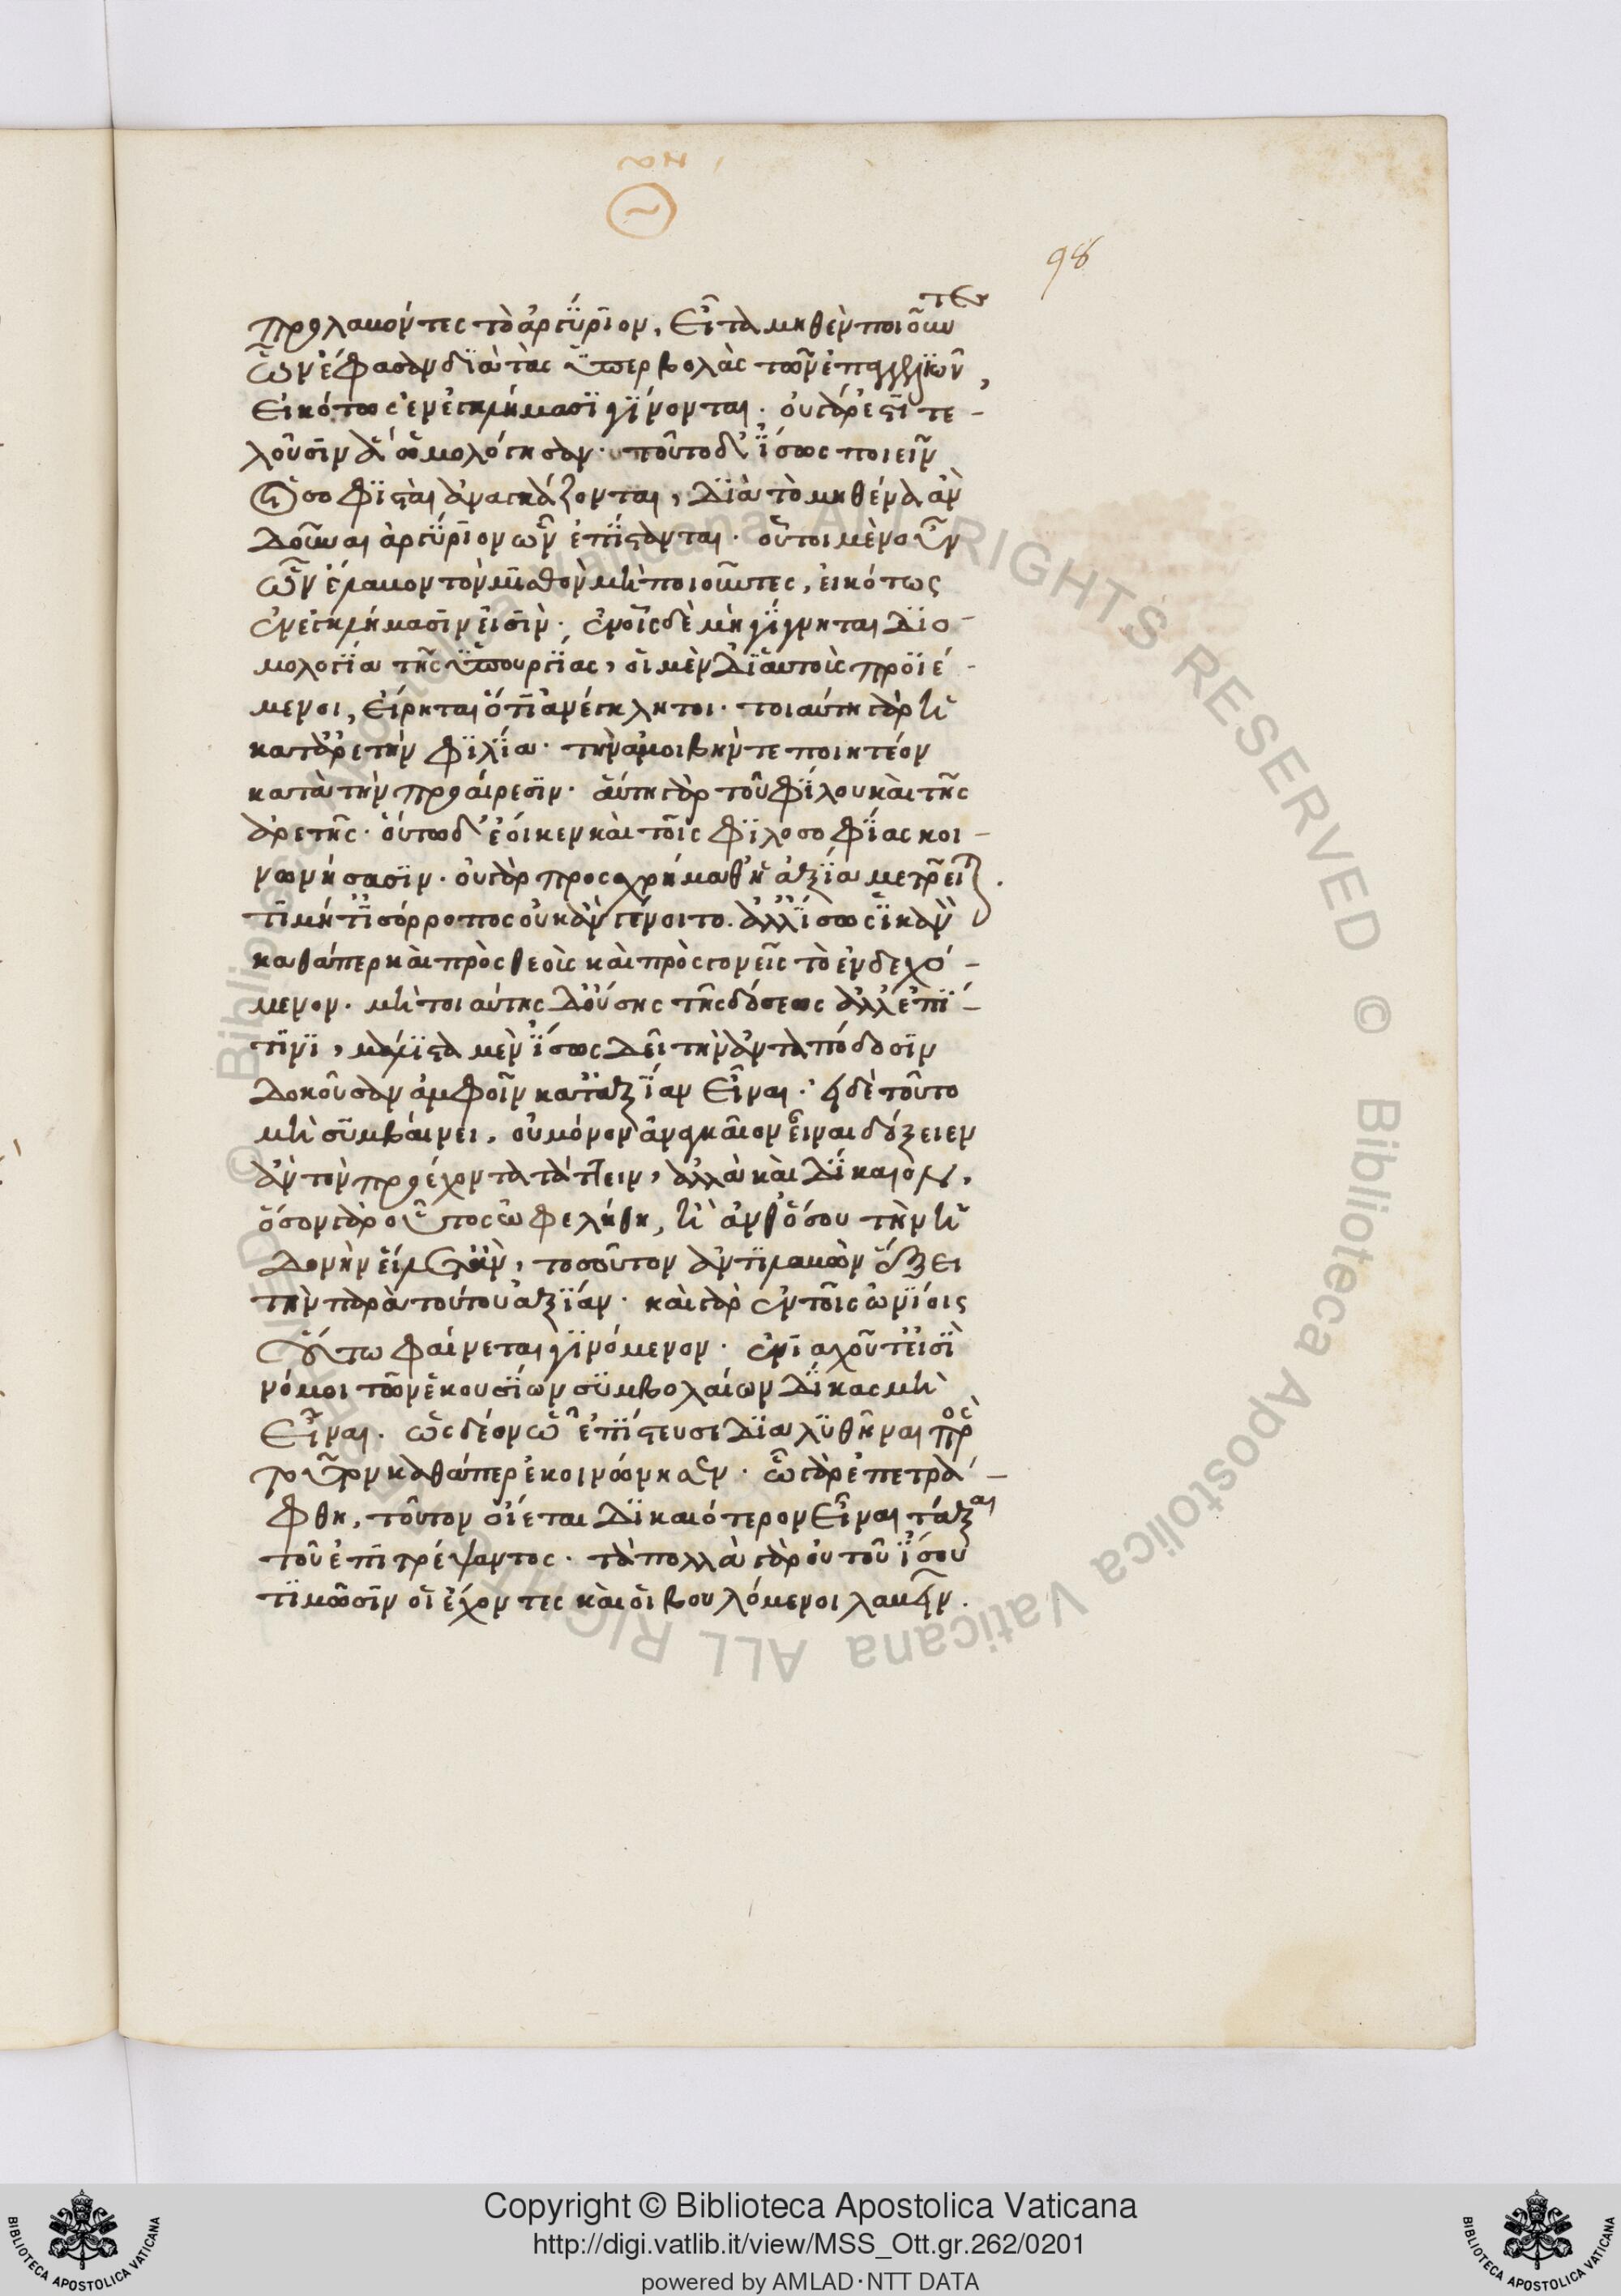 98
προλαμβόντες τὸ ἀργύριον, εἶτα μηθὲν ποιοῦντες
ὧν ἔφασαν διὰ τὰς ὑπερβολὰς τῶν ἐπαγγελιῶν,
εἰκότως ἐν ἐγκλήμασι γίνονται. οὐ γὰρ ἐπιτε-
λοῦσιν ἃ ὡμολόγησαν. τοῦτο δ' ἴσως ποιεῖν
οἱ σοφισταὶ ἀναγκάζονται, διὰ τὸ μηθένα ἂν
δοῦναι ἀργύριον ὧν ἐπίστανται. οὗτοι μὲν οὖν
ὧν ἔλαβον τὸν μισθὸν μὴ ποιοῦντες, εἰκότως
ἐν ἐγκλήμασιν εἰσίν. ἐν οἷς δὲ μὴ γίγνηται διο-
μολογία τῆς ὑπουργίας, οἱ μὲν δι' αὐτοὺς προϊέ-
μενοι, εἴρηται ὅτι ἀνέγκλητοι. τοιαύτη γὰρ ἡ
κατ' ἀρετὴν φιλία. τὴν ἀμοιβήν τε ποιητέον
κατὰ τὴν προαίρεσιν. αὕτη γὰρ τοῦ φίλου καὶ τῆς
ἀρετῆς. οὕτω δ' ἔοικεν καὶ τοῖς φιλοσοφίας κοι-
νωνήσασιν. οὐ γὰρ πρὸς χρήμαθ' ἡ ἀξία μετρεῖται.
τιμή τ' ἰσόρροπος οὐκ ἂν γένοιτο. ἀλλ' ἴσως ἱκανὸν
καθάπερ καὶ πρὸς θεοὺς καὶ πρὸς γονεῖς τὸ ἐνδεχό-
μενον. μὴ τοιαύτης δ' οὔσης τῆς δόσεως ἀλλ' ἐπί
τινι, μάλιστα μὲν ἴσως δεῖ τὴν ἀνταπόδοσιν
δοκοῦσαν ἀμφοῖν κατ' ἀξίαν εἶναι. εἰ δὲ τοῦτο
μὴ συμβαίνει, οὐ μόνον ἀναγκαῖον εἶναι δόξειεν
ἂν τὸν προέχοντα τάττειν, ἀλλὰ καὶ δίκαιον,
ὅσον γὰρ οὗτος ὠφελήθη, ἢ ἀνθ' ὅσου τὴν ἡ
δονὴν εἵλετ' ἄν, τοσοῦτον ἀντιλαβὼν ἕξει
τὴν παρὰ τούτου ἀξίαν. καὶ γὰρ ἐν τοῖς ὠνίοις
οὕτω φαίνεται γινόμενον. ἐνιαχοῦ τ' εἰσὶ
νόμοι τῶν ἑκουσίων συμβολαίων δίκας μὴ
εἶναι. ὡς δέον ᾧ ἐπίστευσε διαλυθῆναι πρὸς
τοῦτον καθάπερ ἐκοινώνησεν. ᾧ γὰρ ἐπετρά-
φθη, τοῦτον οἴεται δικαιότερον εἶναι τάξαι
τοῦ ἐπιτρέψαντος. τὰ πολλὰ γὰρ οὐ τοῦ ἴσου
τιμῶσιν οἱ ἔχοντες καὶ οἱ βουλόμενοι λαβεῖν.
© Biblioteca Apostolica Vaticana ALL RIGHTS RESERVED
© Biblioteca Apostolica Vaticana ALL RIGHTS RESERVED
Copyright © Biblioteca Apostolica Vaticana
http://digi.vatlib.it/view/MSS_Ott.gr.262/0201
powered by AMLAD·NTT DATA
BIBLIOTECA APOSTOLICA VATICANA
BIBLIOTECA APOSTOLICA VATICANA